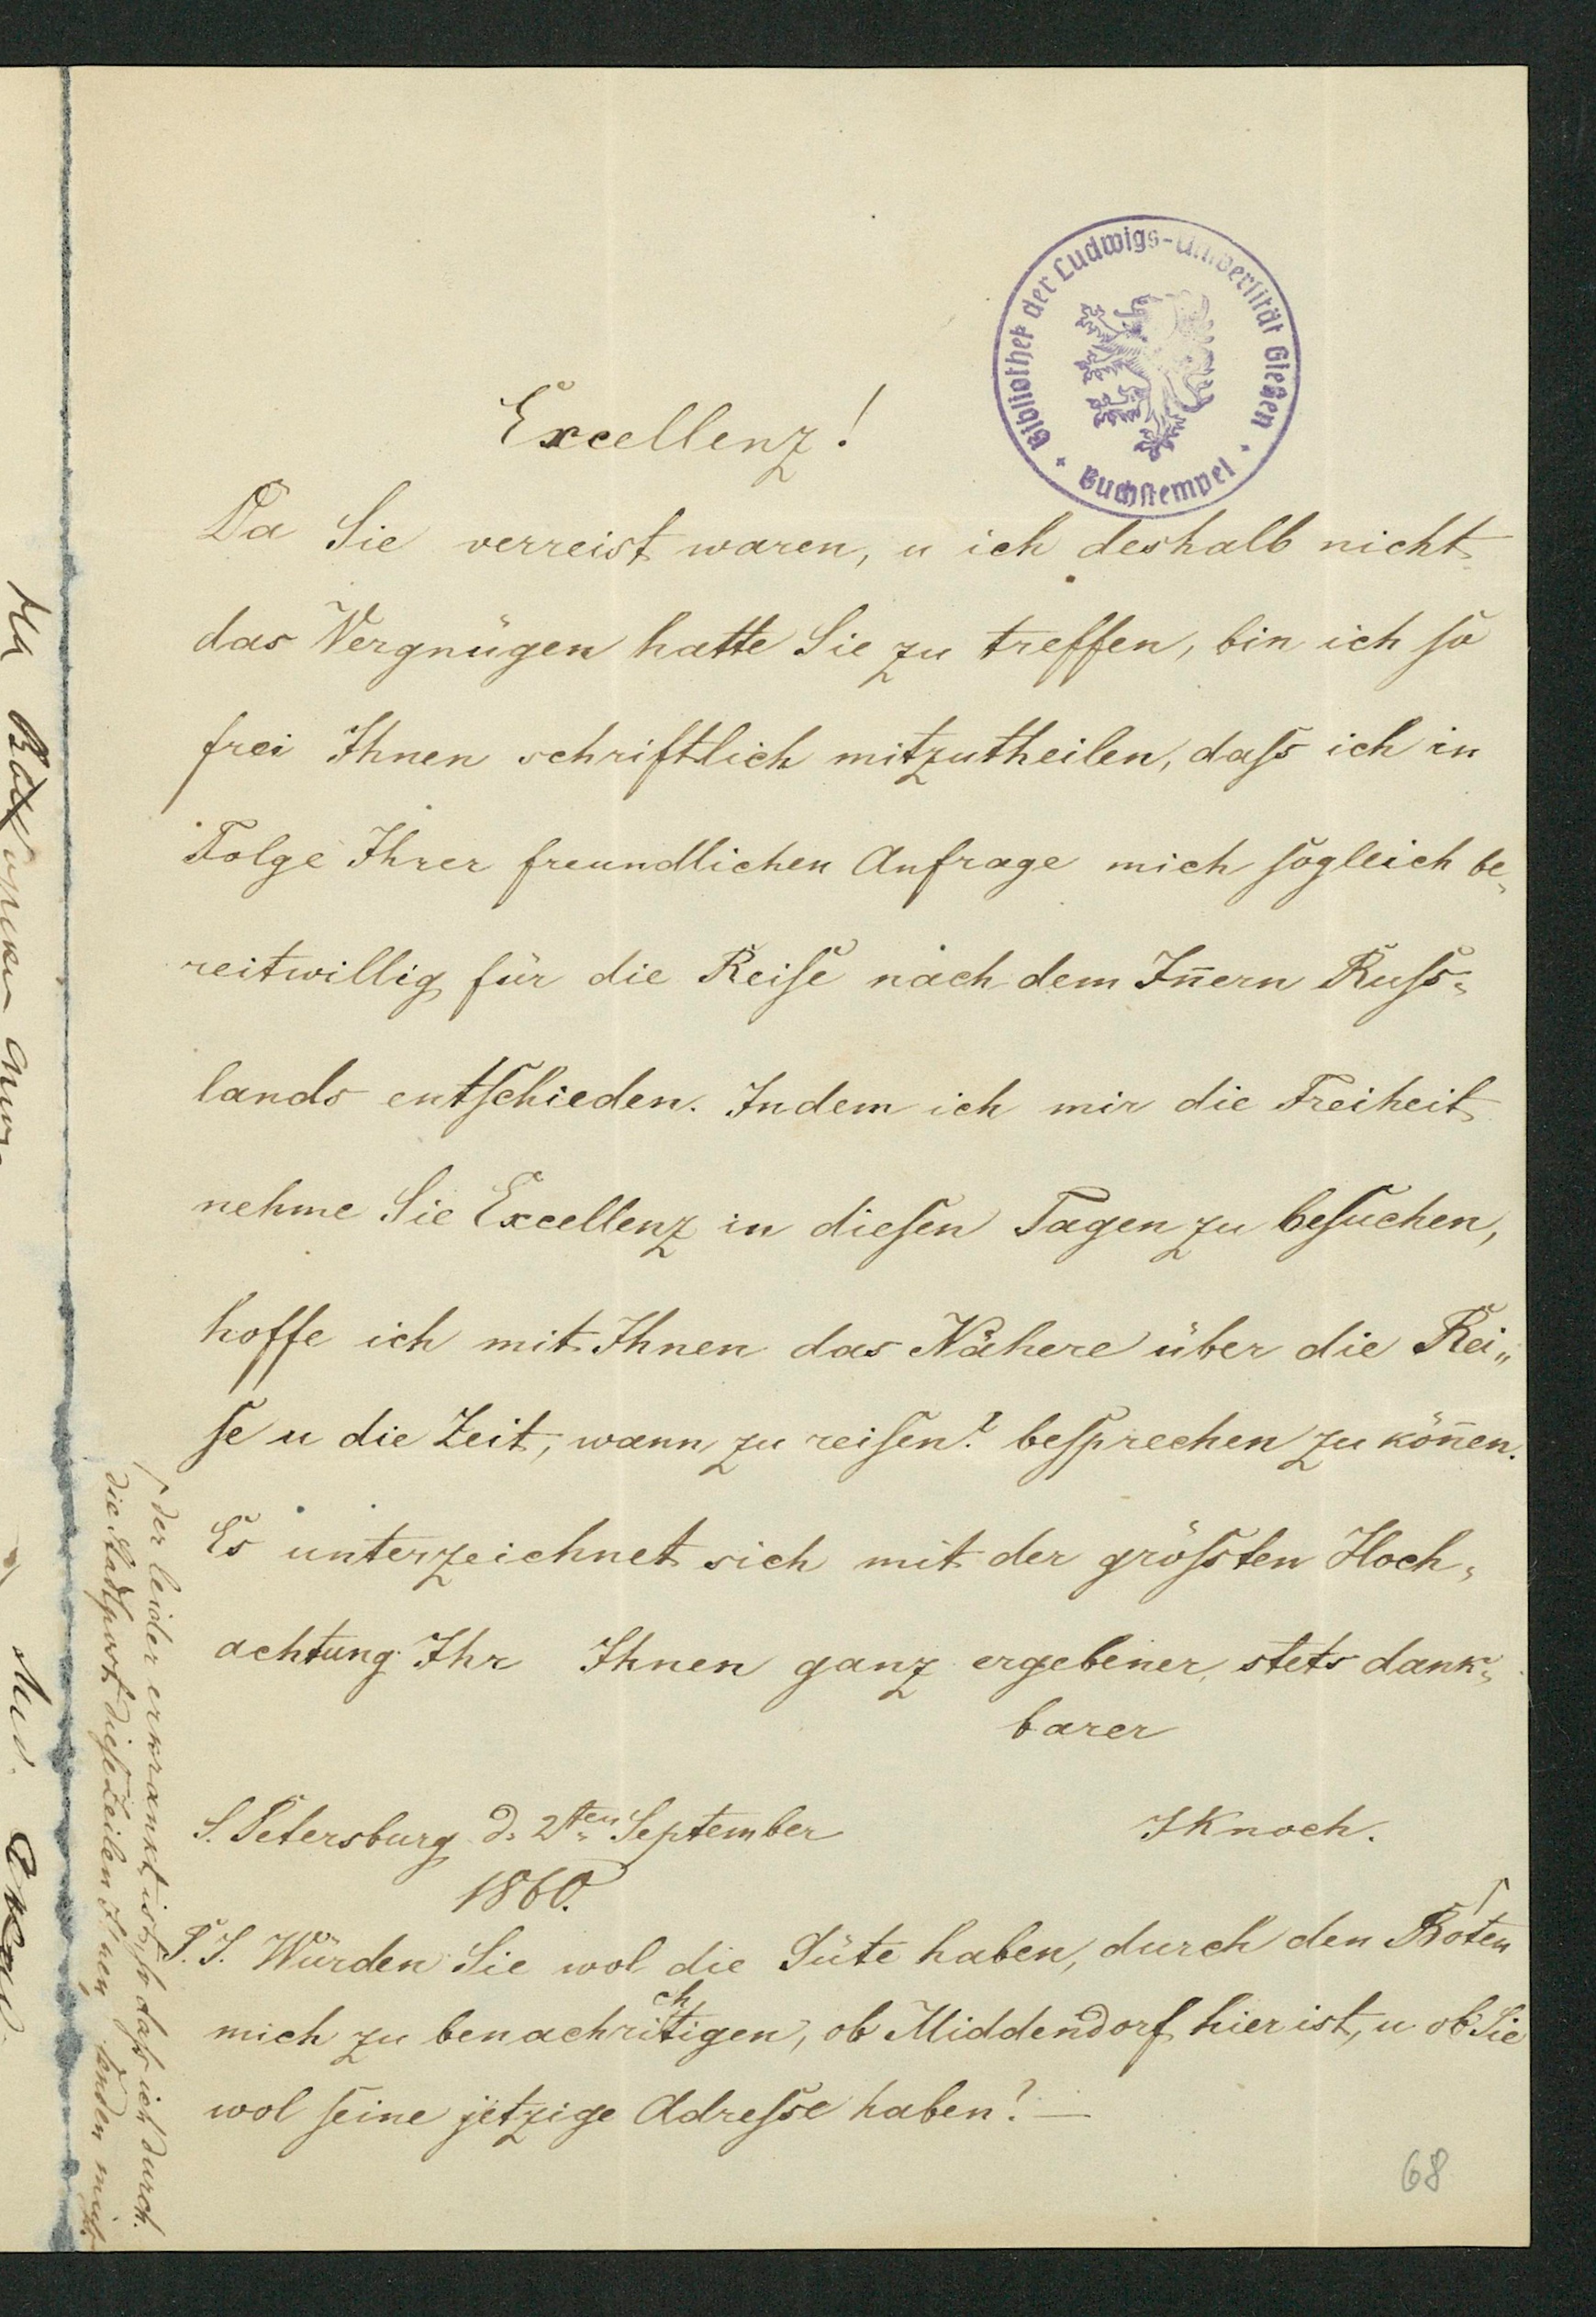 Bibliothek der Ludwigs-Universität Gießen
Buchstempel
Excellenz!
Da Sie verreist waren, u ich deshalb nicht
das Vergnügen hatte Sie zu treffen, bin ich ſo
frei Ihnen schriftlich mitzutheilen, daſs ich in
Folge Ihrer freundlichen Anfrage mich ſogleich be„
reitwillig für die Reiſe nach dem In̄ern Ruſs„
lands entſchieden. Indem ich mir die Freiheit
nehme Sie Excellenz in dieſen Tagen zu beſuchen,
hoffe ich mit Ihnen das Nähere über die Rei„
ſe u die Zeit, wann zu reiſen? beſprechen zu kön̄en.
Es unterzeichnet sich mit der gröſsten Hoch„
achtung Ihr Ihnen ganz ergebener, stets dank„
barer
S. Petersburg d. 2ten September
1860.
JKnoch.
P.S. Würden Sie wol die Güte haben, durch den Boten
mich zu benachrichtigen, ob Middendorf hier ist, u ob Sie
wol ſeine jetzige Adreſse haben? —
der leider erkrankt ist, ſo daſs ich durch
die Stadtpost dieſe Zeilen Ihnen ſenden muſs
68